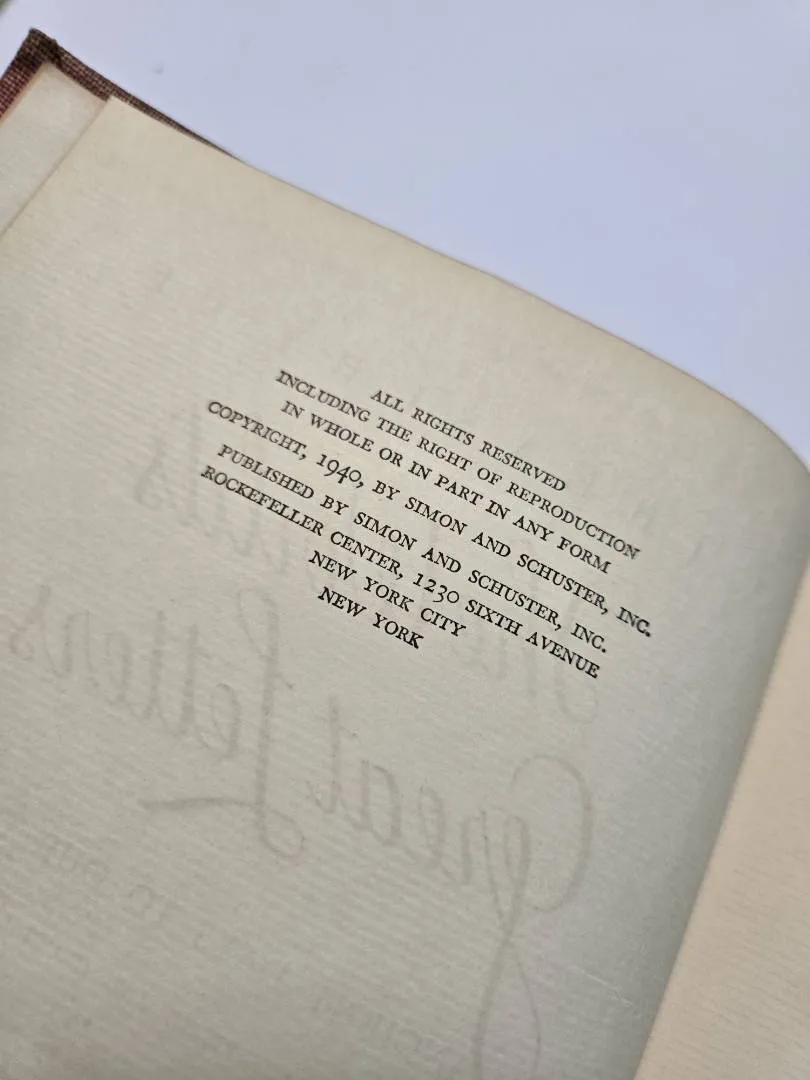 ALL RIGHTS RESERVED
INCLUDING THE RIGHT OF REPRODUCTION
IN WHOLE OR IN PART IN ANY FORM
COPYRIGHT, 1940, BY SIMON AND SCHUSTER, INC.
PUBLISHED BY SIMON AND SCHUSTER, INC.
ROCKEFELLER CENTER, 1230 SIXTH AVENUE
NEW YORK CITY
NEW YORK
Great Letters